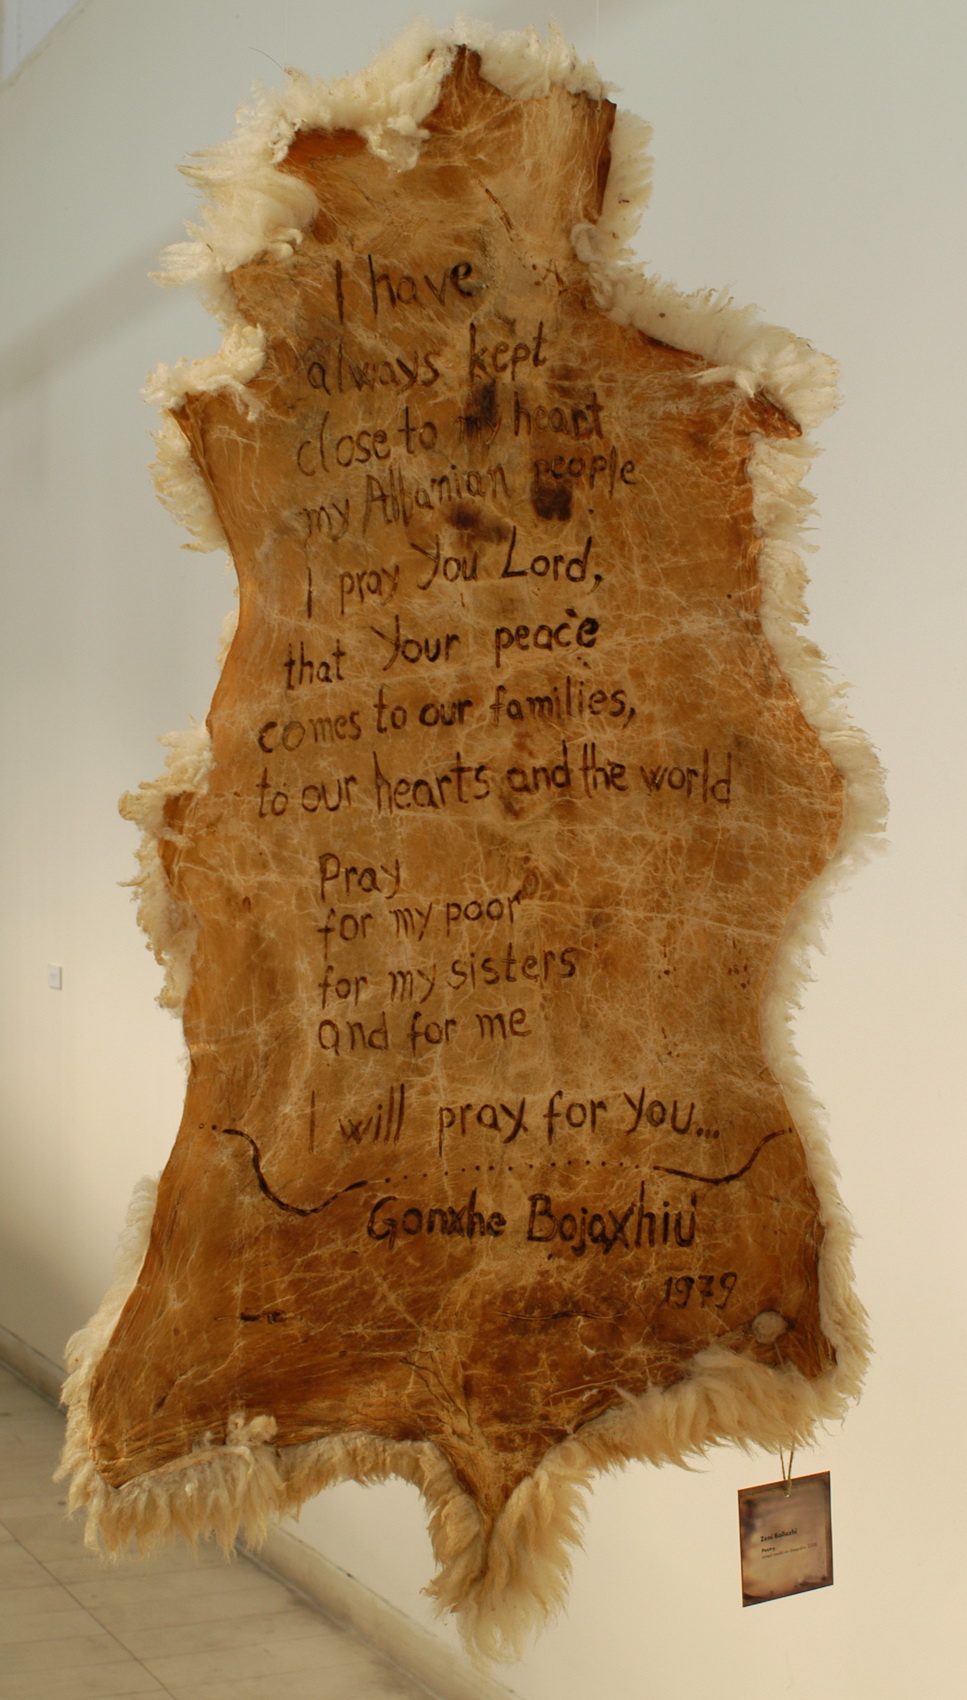 I have
always kept
close to my heart
my Albanian people.
I pray You Lord,
that Your peace
comes to our families,
to our hearts and the world
Pray
for my poor
for my sisters
and for me
I will pray for You...
Gonxhe Bojaxhiu
1979
Poetry